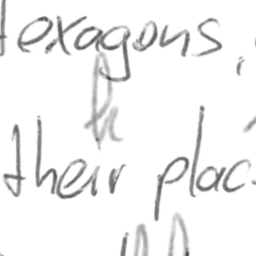 exagons,
their plac